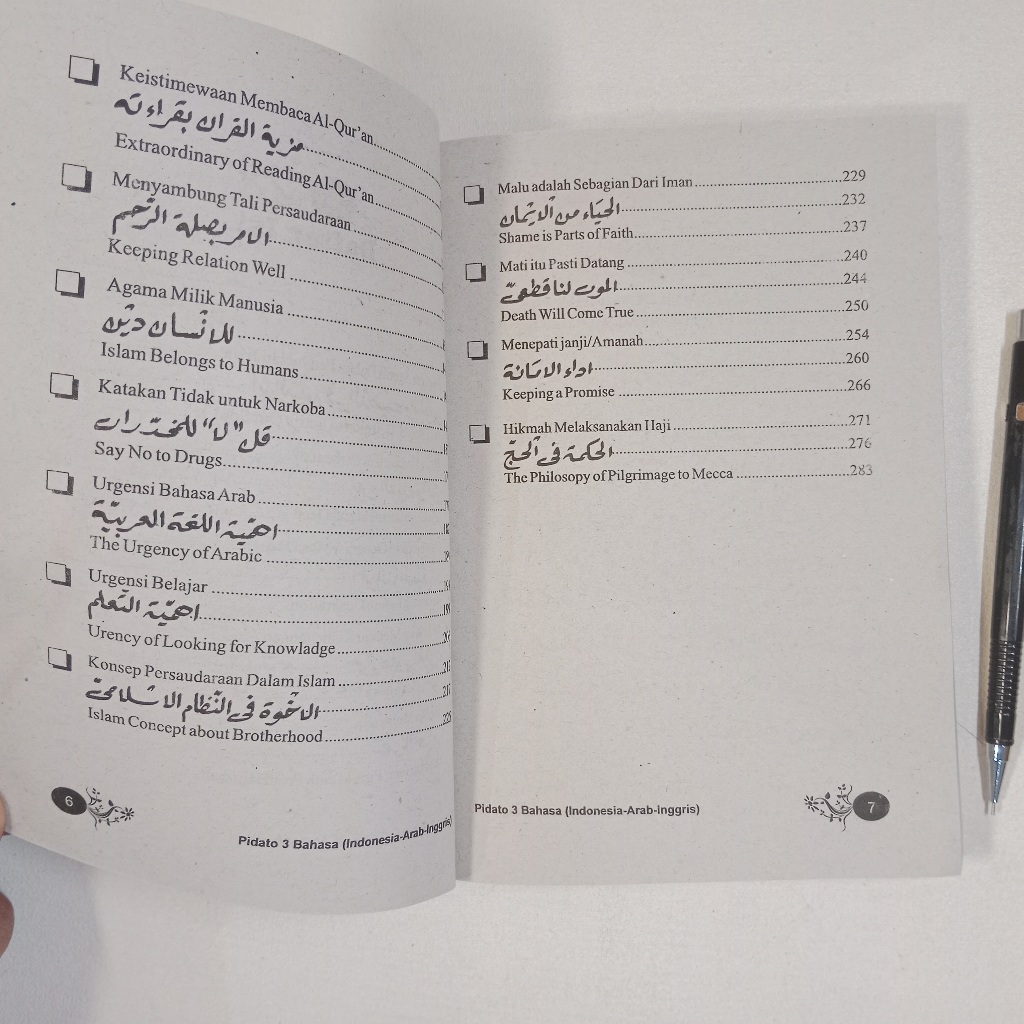 Keistimewaan Membaca Al-Qur'an
مزية القران بقراءته
Extraordinary of Reading Al-Qur'an
Menyambung Tali Persaudaraan
الامر بصلة الرّحم
Keeping Relation Well
Agama Milik Manusia
للانْسان ديْن
Islam Belongs to Humans
Katakan Tidak untuk Narkoba
قل "لا" للمخدّرات
Say No to Drugs
Urgensi Bahasa Arab
اهمّيّة اللغة العربيّة
The Urgency of Arabic
Urgensi Belajar
اهمّيّة التّعلم
Urency of Looking for Knowladge
Konsep Persaudaraan Dalam Islam
الاخْوة في النّظام الاسْلاميّ
Islam Concept about Brotherhood
6
Pidato 3 Bahasa (Indonesia-Arab-Inggris)
Malu adalah Sebagian Dari Iman 229
الحيَاء من اْلايْمان 232
Shame is Parts of Faith 237
Mati itu Pasti Datang 240
الموت لنا قطعيّ 244
Death Will Come True 250
Menepati janji/Amanah 254
اداء الامَانة 260
Keeping a Promise 266
Hikmah Melaksanakan Haji 271
الحكمة في اْلحجّ 276
The Philosopy of Pilgrimage to Mecca 283
Pidato 3 Bahasa (Indonesia-Arab-Inggris)
7